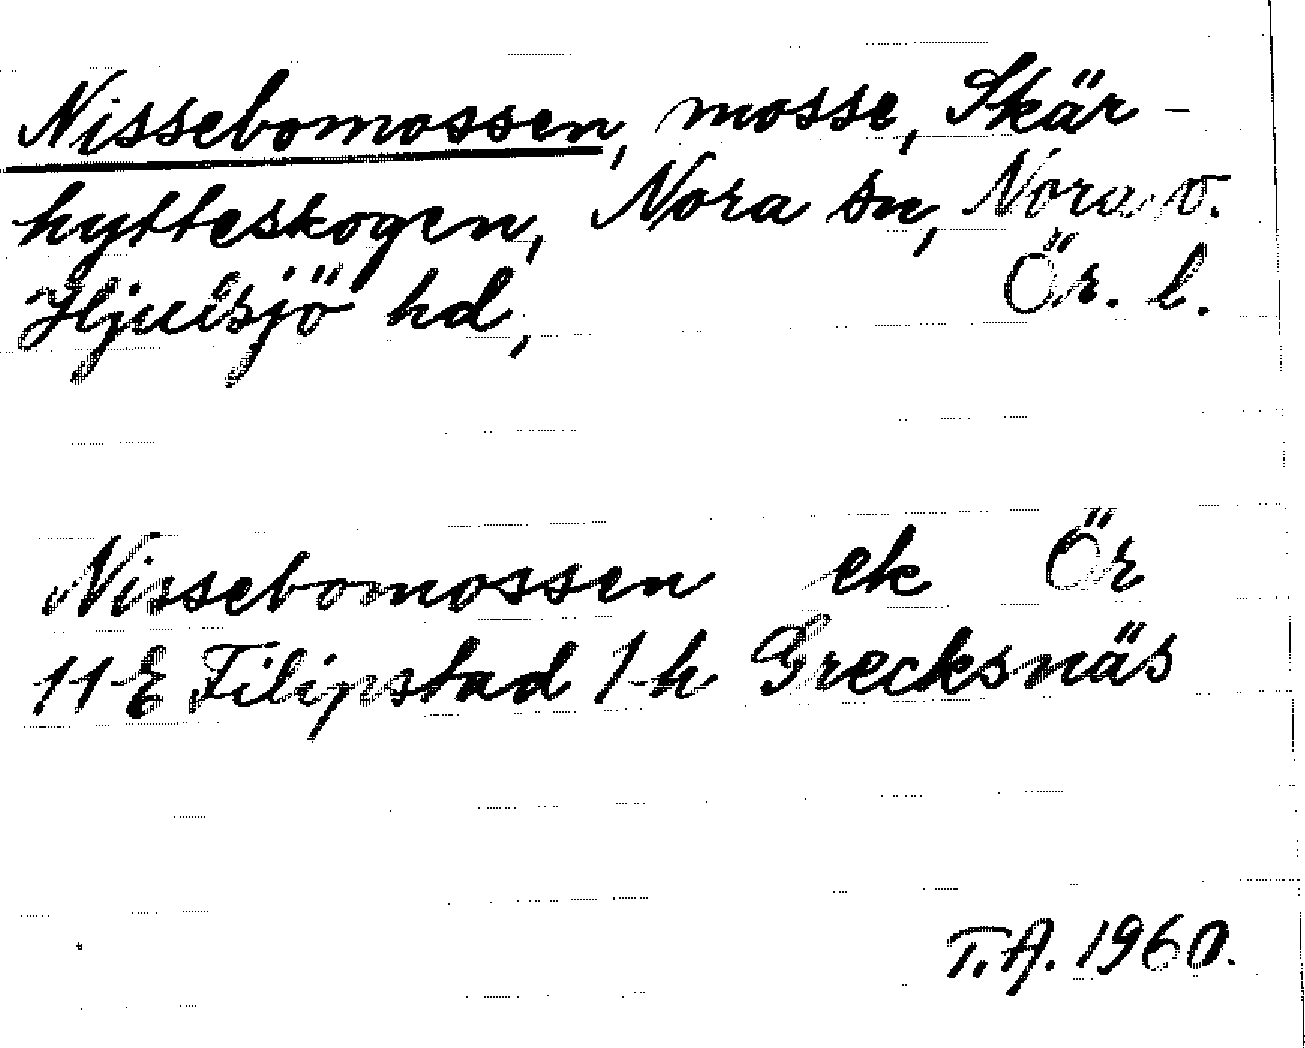 Nissebomossen, mosse, Skär-
hytteskogen, Nora sn, Nora o.
Hjulsjö hd, Ör. l.
Nissebomossen ek Ör
11 E Filipstad 1 h Grecksnäs
T.A. 1960.